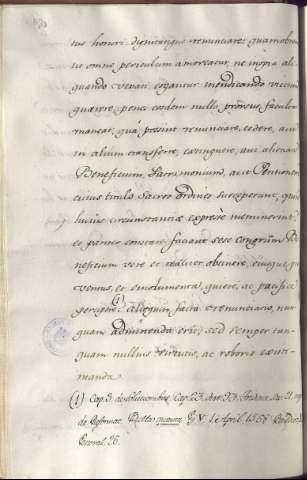 tus honori, dignitatique renunciare: quamobrem
ut omne periculum amoveatur, ne inopia ali-
quando vexati cogantur mendicando victum
quaerere, penes eosdem nulla prorsus facultas
maneat, qua possint renunciare, cedere, aut
in alium transferre, extinguere, aut alienare
Beneficium, Patrimonium, aut Pensionem
cuius titulo Sacros Ordines susceperunt, quin
huius circumstantiae expresse meminerint:
et pariter constare faciant sese congruum Be-
neficium vere et realiter obtinere, eiusque pro-
ventus, et emolumenta quiete, ac pacifice
percipere (1) alioquin facta renunciatio, nun-
quam admittenda erit, sed semper tan-
quam nullius virtutis, ac roboris exsti-
manda.
(1) Cap. 3. de Sess. 21.
de Reformat. Pii V. April 1568